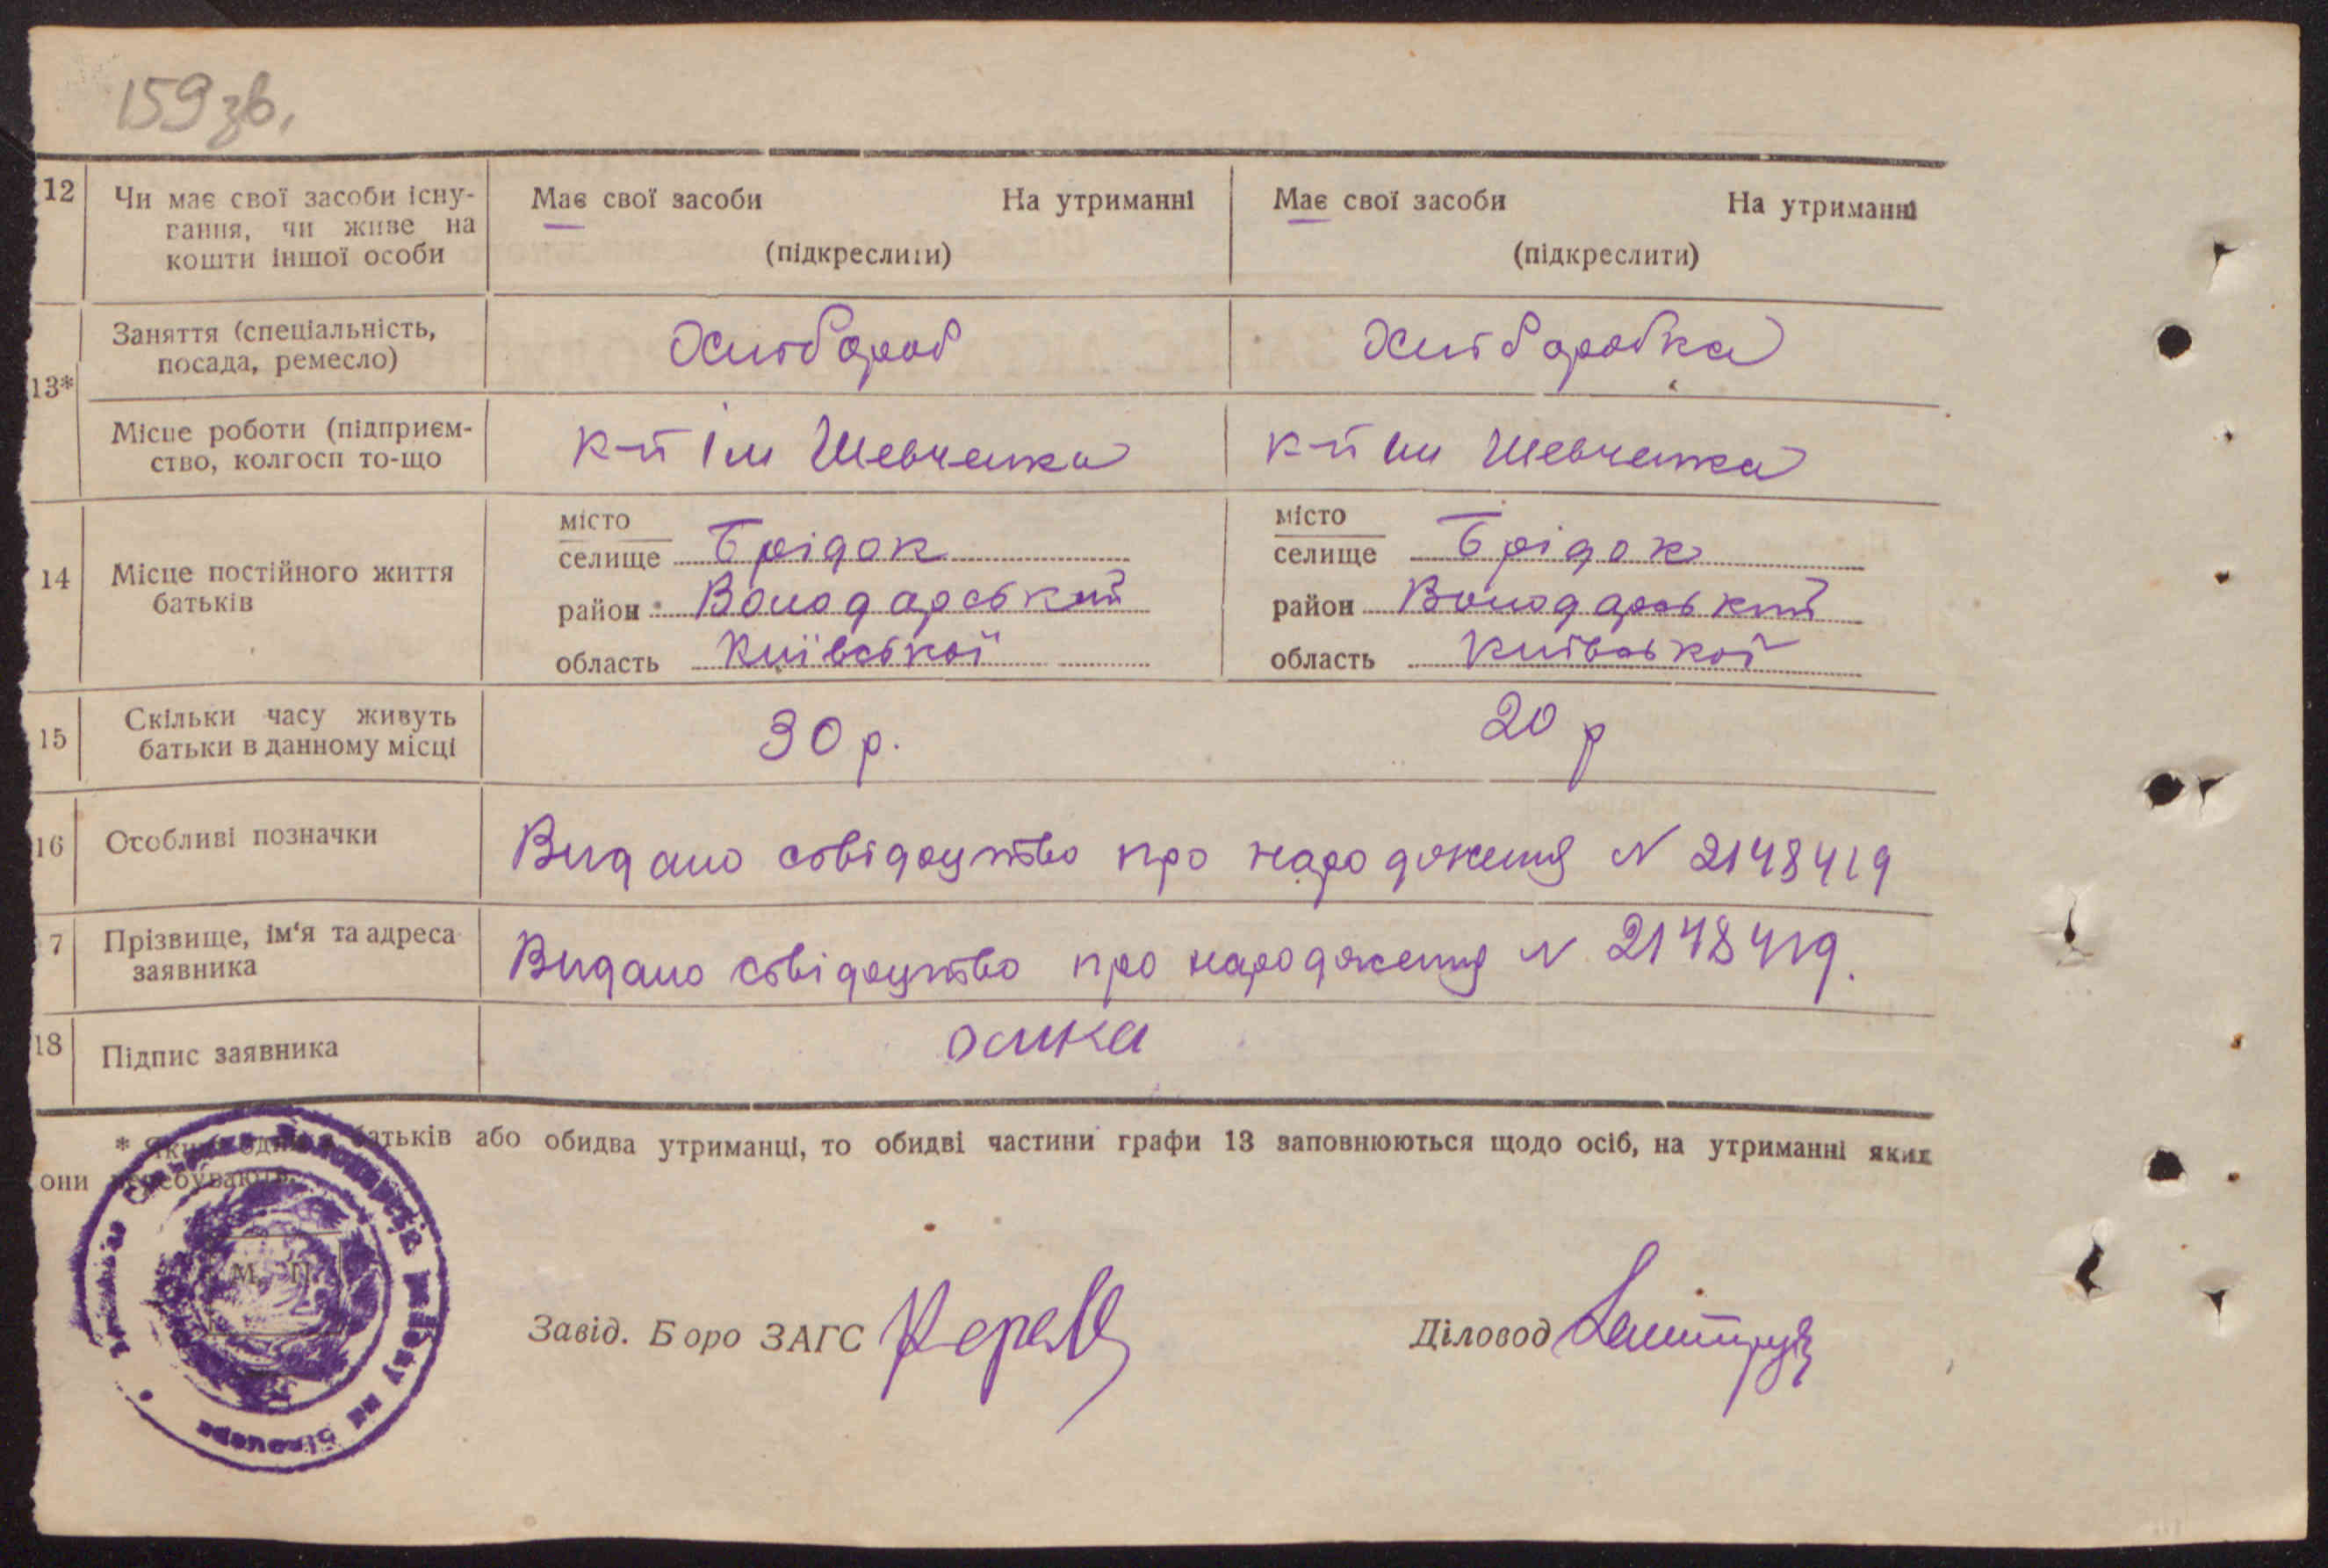 159 зв.
12 Чи має свої засоби існу- Має свої засоби На утриманні Має свої засоби На утриманні
вання, чи живе на
кошти іншої особи (підкреслити) (підкреслити)
Заняття (спеціальність, Хлібороб Хліборобка
посада, ремесло)
13*
Місце роботи (підприєм- к-п ім Шевченка к-п ім Шевченка
ство, колгосп то-що
місто місто
селище Брідок селище Брідок
14 Місце постійного життя
батьків район Володарський район Володарський
область Київської область Київської
15 Скільки часу живуть 30 р. 20 р
батьки в данному місці
16 Особливі позначки Видано свідоцтво про народження N 2148419
7 Прізвище, ім'я та адреса Видано свідоцтво про народження N 2148419.
заявника
18 Підпис заявника
* Якщо один з батьків або обидва утриманці, то обидві частини графи 13 заповнюються щодо осіб, на утриманні яких
они перебувають.
М. П.
Завід. Бюро ЗАГС Діловод